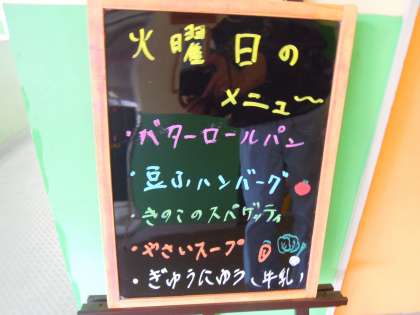 火曜日の
メニュ〜
・バターロールパン
・豆ふハンバーグ
・きのこのスパゲッティ
・やさいスープ
・ぎゅうにゅう(牛乳)